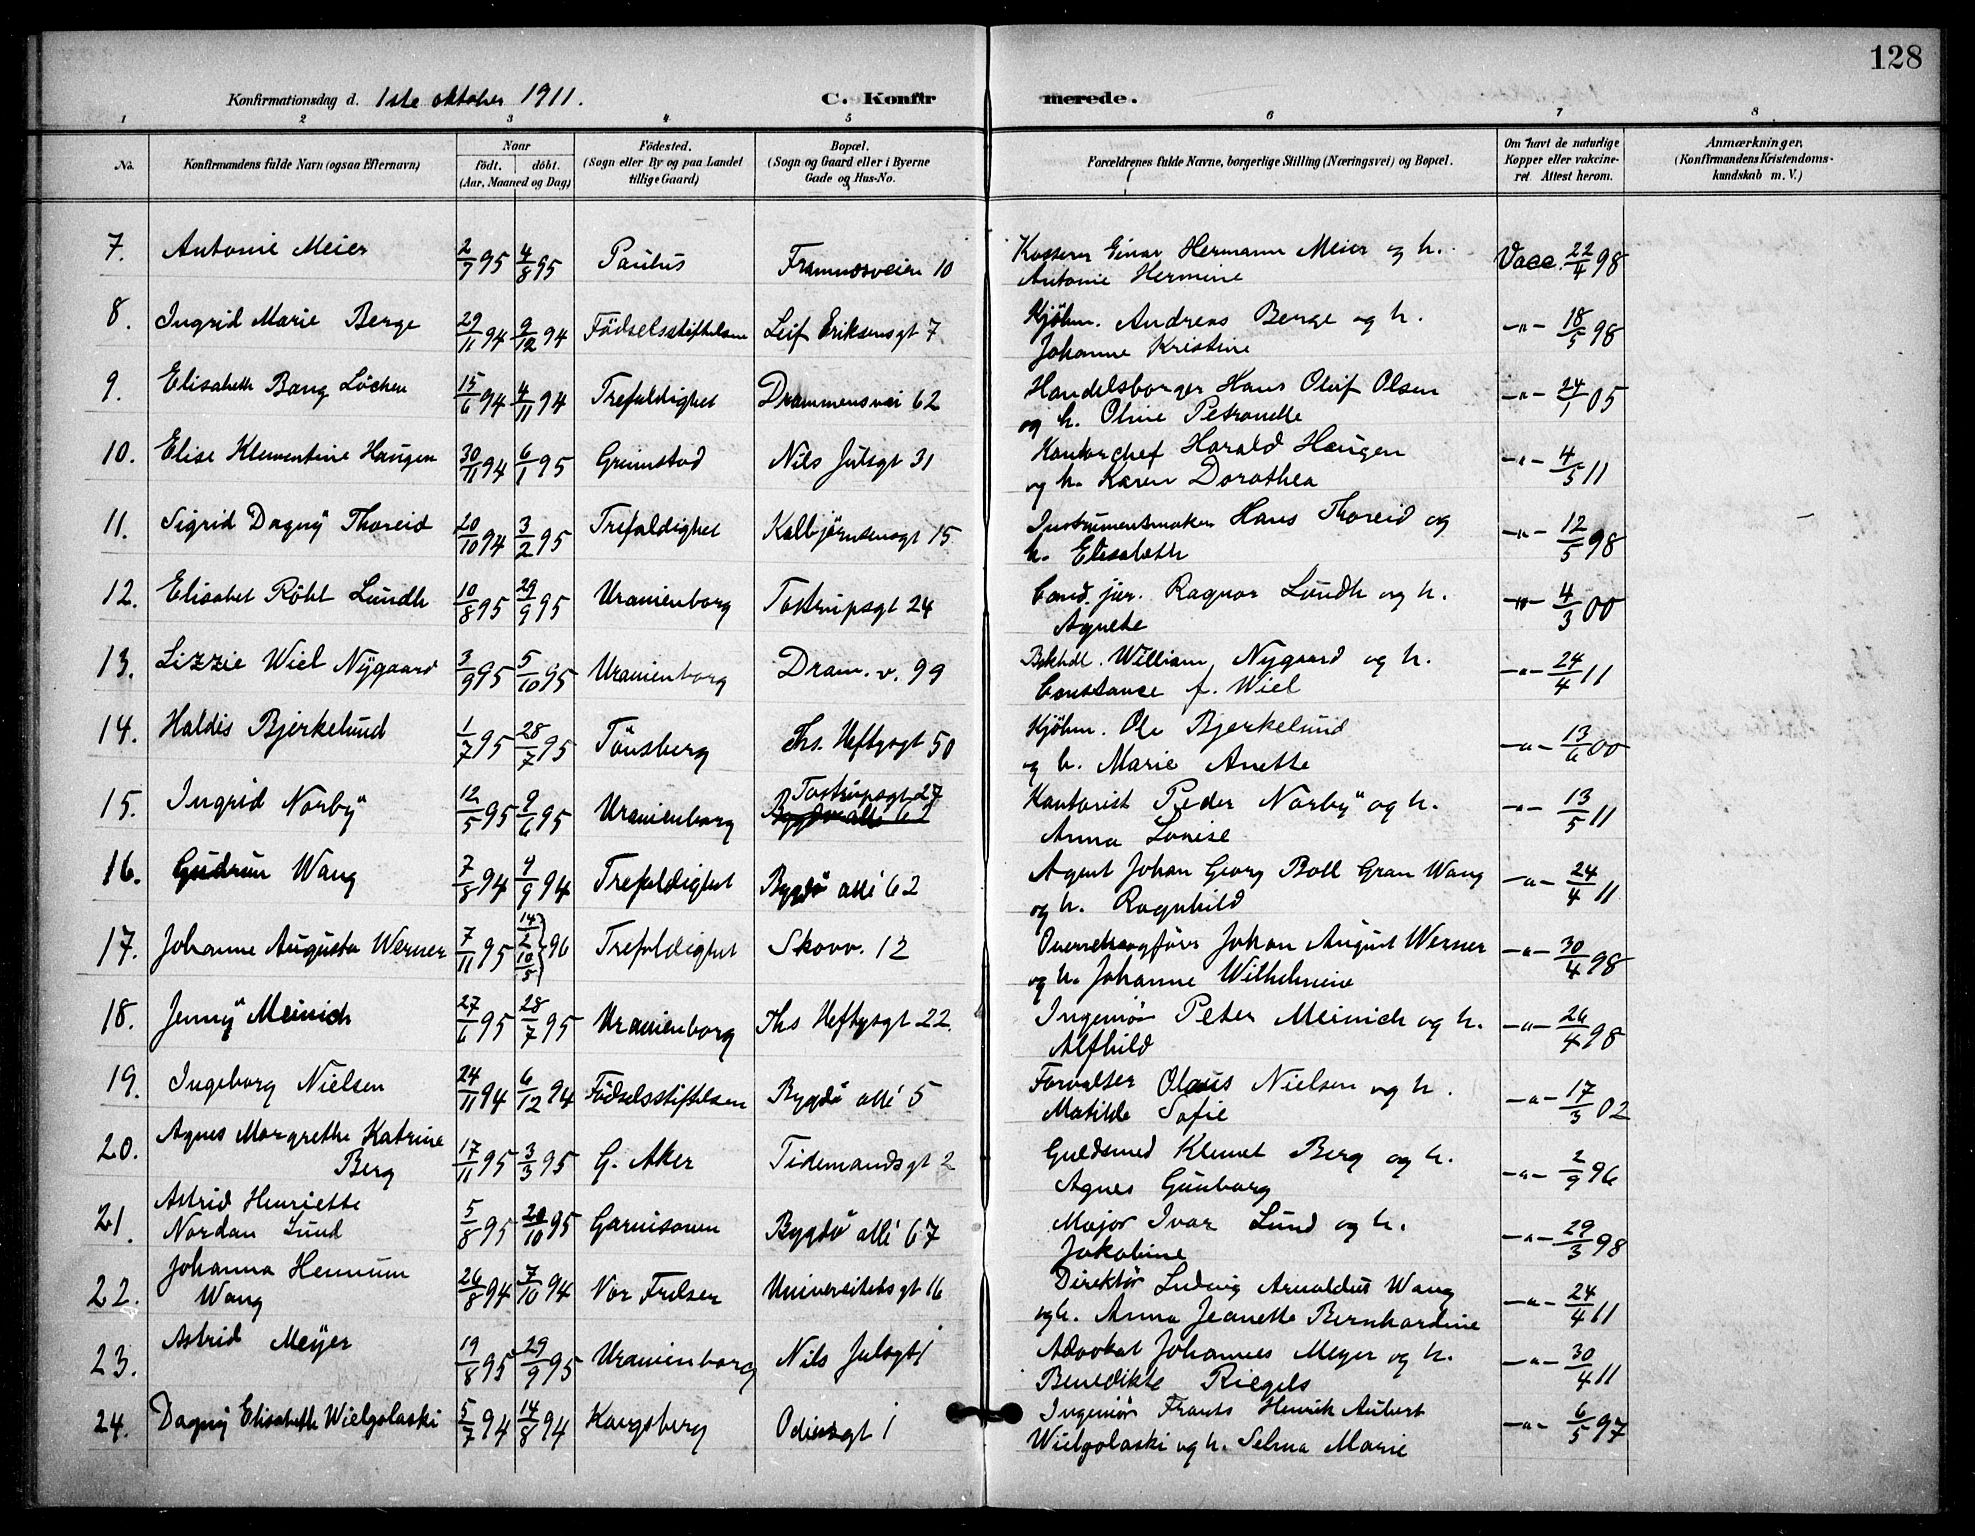 128
Konfirmationsdag d. 1ste oktober 1911.
C. Konfirmerede.
1 2 3 4 5 6 7 8
No. Konfirmandens fulde Navn (ogsaa Efternavn) Naar født. døbt. (Aar, Maaned og Dag) Fødested. (Sogn eller By og paa Landet tillige Gaard) Bopæl. (Sogn og Gaard eller i Byerne Gade og Hus-No. Forældrenes fulde Navne, borgerlige Stilling (Næringsvei) og Bopæl. Om havt de naturlige Kopper eller vakcineret. Attest herom. Anmærkninger. (Konfirmandens Kristendomskundskab m. V.)
7. Antonie Meier 2/7 95 4/8 95 Paulus Framnæsveien 10 Kasserer Einar Hermann Meier og h. Vacc. 22/4 98
Antonie Hermine
8. Ingrid Marie Berge 29/11 94 9/12 94 Födselsstiftelsen Leif Eriksensgt 7 Kjøbm. Andreas Berge og h. -"- 18/5 98
Johanne Kristine
9. Elisabeth Bang Löchen 15/6 94 4/11 94 Trefoldighet Drammensvei 62 Handelsborger Hans Oluf Olsen -"- 24/1 05
og h. Oline Petronelle
10. Elise Klementine Haugen 30/11 94 6/1 95 Grimstad Nils Julsgt 31 Kontorchef Harald Haugen -"- 4/5 11
og h. Karen Dorothea
11. Sigrid Dagny Thoreid 20/10 94 3/2 95 Trefoldighet Kolbjørnsensgt 15 Instrumentmaker Hans Thoreid og -"- 12/5 98
h. Elisabeth
12. Elisabet Röhl Lundh 10/8 95 29/9 95 Uranienborg Tostrupsgt 24 Cand. jur. Ragnar Lundh og h. -"- 4/3 00
Agnete
13. Lizzie Wiel Nygaard 3/9 95 5/10 95 Uranienborg Dram. v. 99 Bokhdl. William Nygaard og h. -"- 24/4 11
Constance f. Wiel
14. Haldis Bjerkelund 1/7 95 28/7 95 Tönsberg Ths. Heftysgt 50 Kjøbm. Ole Bjerkelund -"- 13/6 00
og h. Marie Anette
15. Ingrid Norby 12/5 95 9/6 95 Uranienborg Tostrupsgt 27 Kontorist Peder Norby og h. -"- 13/5 11
Anna Lovise
16. Gudrun Wang 7/8 94 9/9 94 Trefoldighet Bygdø allé 62 Agent Johan Georg Boll Gran Wang -"- 24/4 11
og h. Ragnhild
17. Johanne Augusta Werner 7/11 95 14/2 10/5 96 Trefoldighet Skovv. 12 Johan August Werner -"- 30/4 98
og h. Johanne Wilhelmine
18. Jenny Meinich 27/6 95 28/7 95 Uranienborg Ths Heftysgt 22. Ingeniør Peter Meinich og h. -"- 26/4 98
Alfhild
19. Ingeborg Nielsen 24/11 94 6/12 94 Födselsstiftelsen Bygdø allé 5 Forvalter Olaus Nielsen og h. -"- 17/3 02
Matilde Sofie
20. Agnes Margrethe Katrine 17/11 95 3/3 95 G. Aker Tidemandsgt 2 Guldsmed Klemet Berg og h. -"- 2/9 96
Berg Agnes Gunborg
21. Astrid Henriette 5/8 95 20/10 95 Garnisonen Bygdø allé 67 Major Ivar Lund og h. -"- 29/3 98
Nordan Lund Jakobine
22. Johanna Hennum 26/8 94 7/10 94 Vor Frelser Universitetsgt 16 Direktør Ludvig Arnoldus Wang -"- 24/4 11
Wang og h. Anna Jeanette Bernhardine
23. Astrid Meyer 19/8 95 29/9 95 Uranienborg Nils Julsgt 1 Advokat Johannes Meyer og h. -"- 30/4 11
Benedikte Riegels
24. Dagny Elisabeth Wielgolaski 5/7 94 14/8 94 Kongsberg Odinsgt 1 Ingeniør Frants Henrik Aubert -"- 6/5 97
Wielgolaski og h. Selma Marie